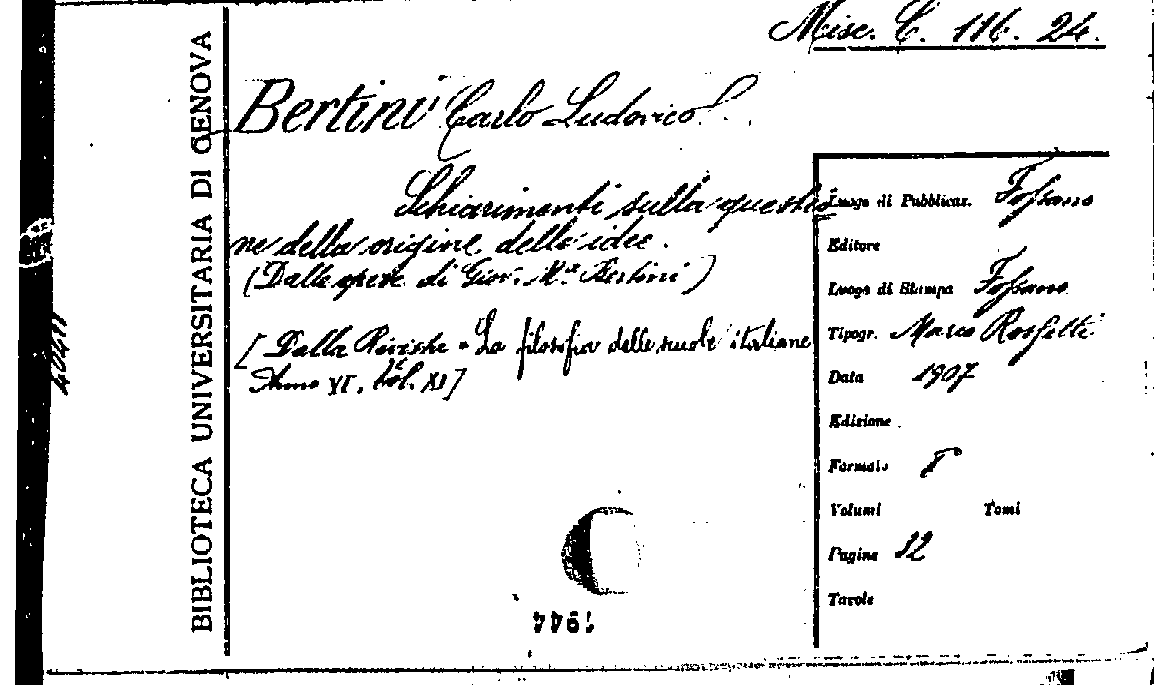 Misc. C. 116. 24.
BIBLIOTECA UNIVERSITARIA DI GENOVA
Bertini Carlo Ludovico.
Schiarimenti sulla questio
ne della origine delle idee.
(Dalle opere di Giov. M.a Bertini)
[Dalla Rivista "La filosofia delle scuole italiane
Anno VI, Vol. XI]
Luogo di Pubblicaz. Fossano
Editore
Luogo di Stampa Fossano
Tipogr. Marco Rossetti
Data 1907
Edizione
Formato 8°
Volumi Tomi
Pagine 12
Tavole
1944